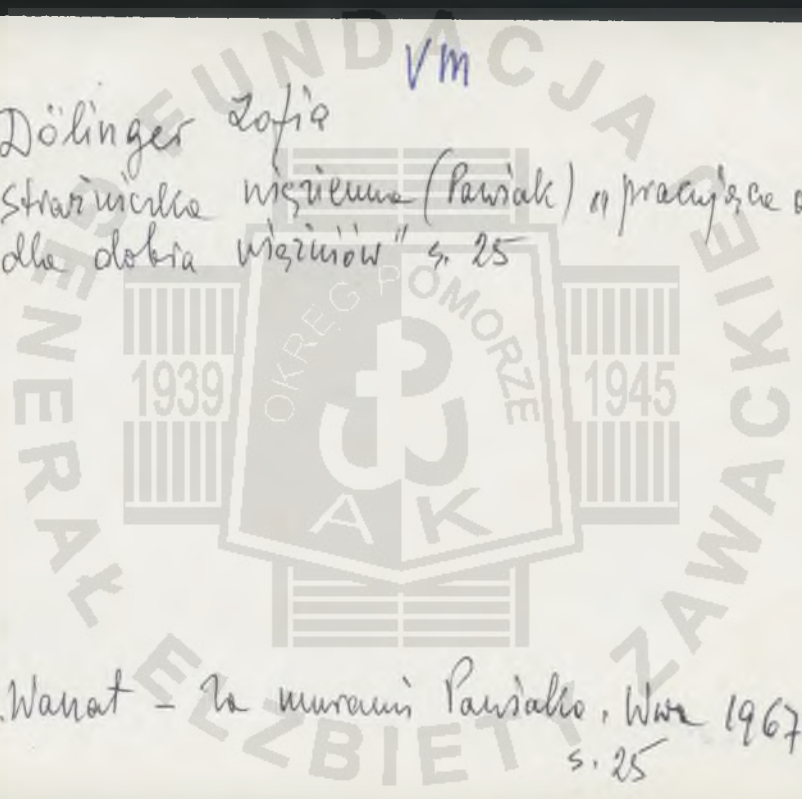 VM
Dölinger Zofia
Strażniczka więzienna (Pawiak) "pracująca
dla dobra więźniów" s. 25
Wanat - Za murami Pawiaka, Wwa 1967
s. 25
FUNDACJA GENERAŁ ELŻBIETY ZAWACKIEJ
OKRĘG POMORZE
1939
1945
AK